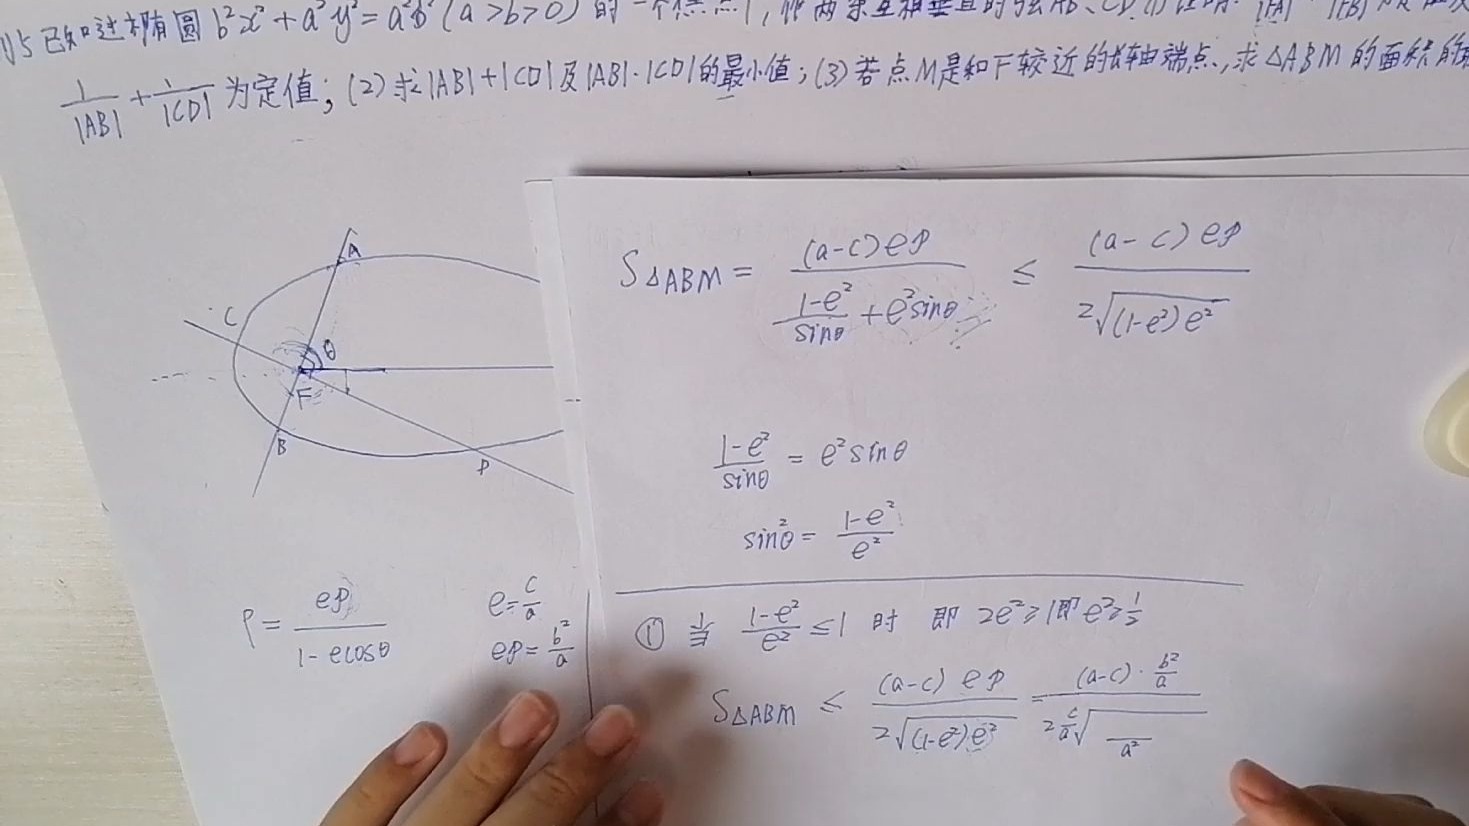 已知过椭圆 b²x²+a²y²=a²b²(a>b>0)的一个焦点F,作两条互相垂直的弦AB、CD.
1/|AB| + 1/|CD| 为定值; (2)求|AB|+|CD|及|AB|·|CD|的最小值;(3)若点M是和F较近的长轴端点,求△ABM的面积的
A
C
θ
F
B
D
ρ = ep/(1-ecosθ)
e=c/a
ep=b²/a
S△ABM = (a-c)ep/((1-e²)/sinθ + e²sinθ) ≤ (a-c)ep/(2√((1-e²)e²))
(1-e²)/sinθ = e²sinθ
sin²θ = (1-e²)/e²
① 当 (1-e²)/e² ≤1 时 即 2e²≥1即e²≥1/2
S△ABM ≤ (a-c)ep/(2√((1-e²)e²)) = (a-c)·b²/a / (2 c/a √(—/a²))